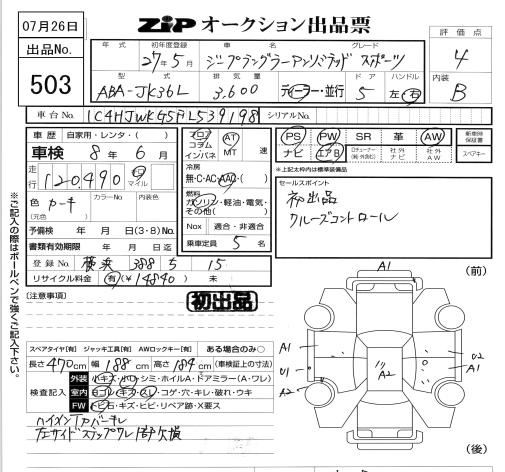 07月26日
ZiP オークション出品票
評価点
出品No.
503
年式 初年度登録 車名 グレード
27年5月 ジープラングラーアンリミテッド スポーツ
4
型式 排気量 ドア ハンドル
ABA-JK36L 3,600 ディーラー・並行 5 左・右
内装
B
車台No. 1C4HJWKG5FL539198 シリアルNo.
車歴 自家用・レンタ・( )
車検 8年6月
走行 120,490 km マイル
色 カーキ (元色) カラーNo. 内装色
予備検 年 月 日(3・8)No.
書類有効期限 年 月 日迄
登録No. 横浜 388 5 15
リサイクル料金 有(¥14840) 未
フロア コラム インパネ AT MT 速
冷房 無・C・AC・AAC・( )
燃料 ガソリン・軽油・電気・その他( )
Nox 適合・非適合
乗車定員 5 名
PS PW SR 革 AW
ナビ エアB 社外ナビ 社外AW
新車時保証書
スペアキー
※上記太枠内は標準装備品
セールスポイント
初出品
クルーズコントロール
※ご記入の際はボールペンで強くご記入下さい。
[注意事項]
初出品
スペアタイヤ[有] ジャッキ工具[有] AWロックキー[有] ある場合のみ○
長さ 470cm 幅 188cm 高さ 184cm (車検証上の寸法)
検査記入
外装 小キズ・小凹・シミ・ホイルA・ドアミラー(A・ワレ)
室内 ヨゴレ・キズ・スレ・コゲ・穴・キレ・破れ・ウキ
FW トビ石・キズ・ヒビ・リペア跡・X要ス
左サイドステップワレ 一部欠損
(前)
A1
A1
U1
A2
A2
U2
A1
(後)